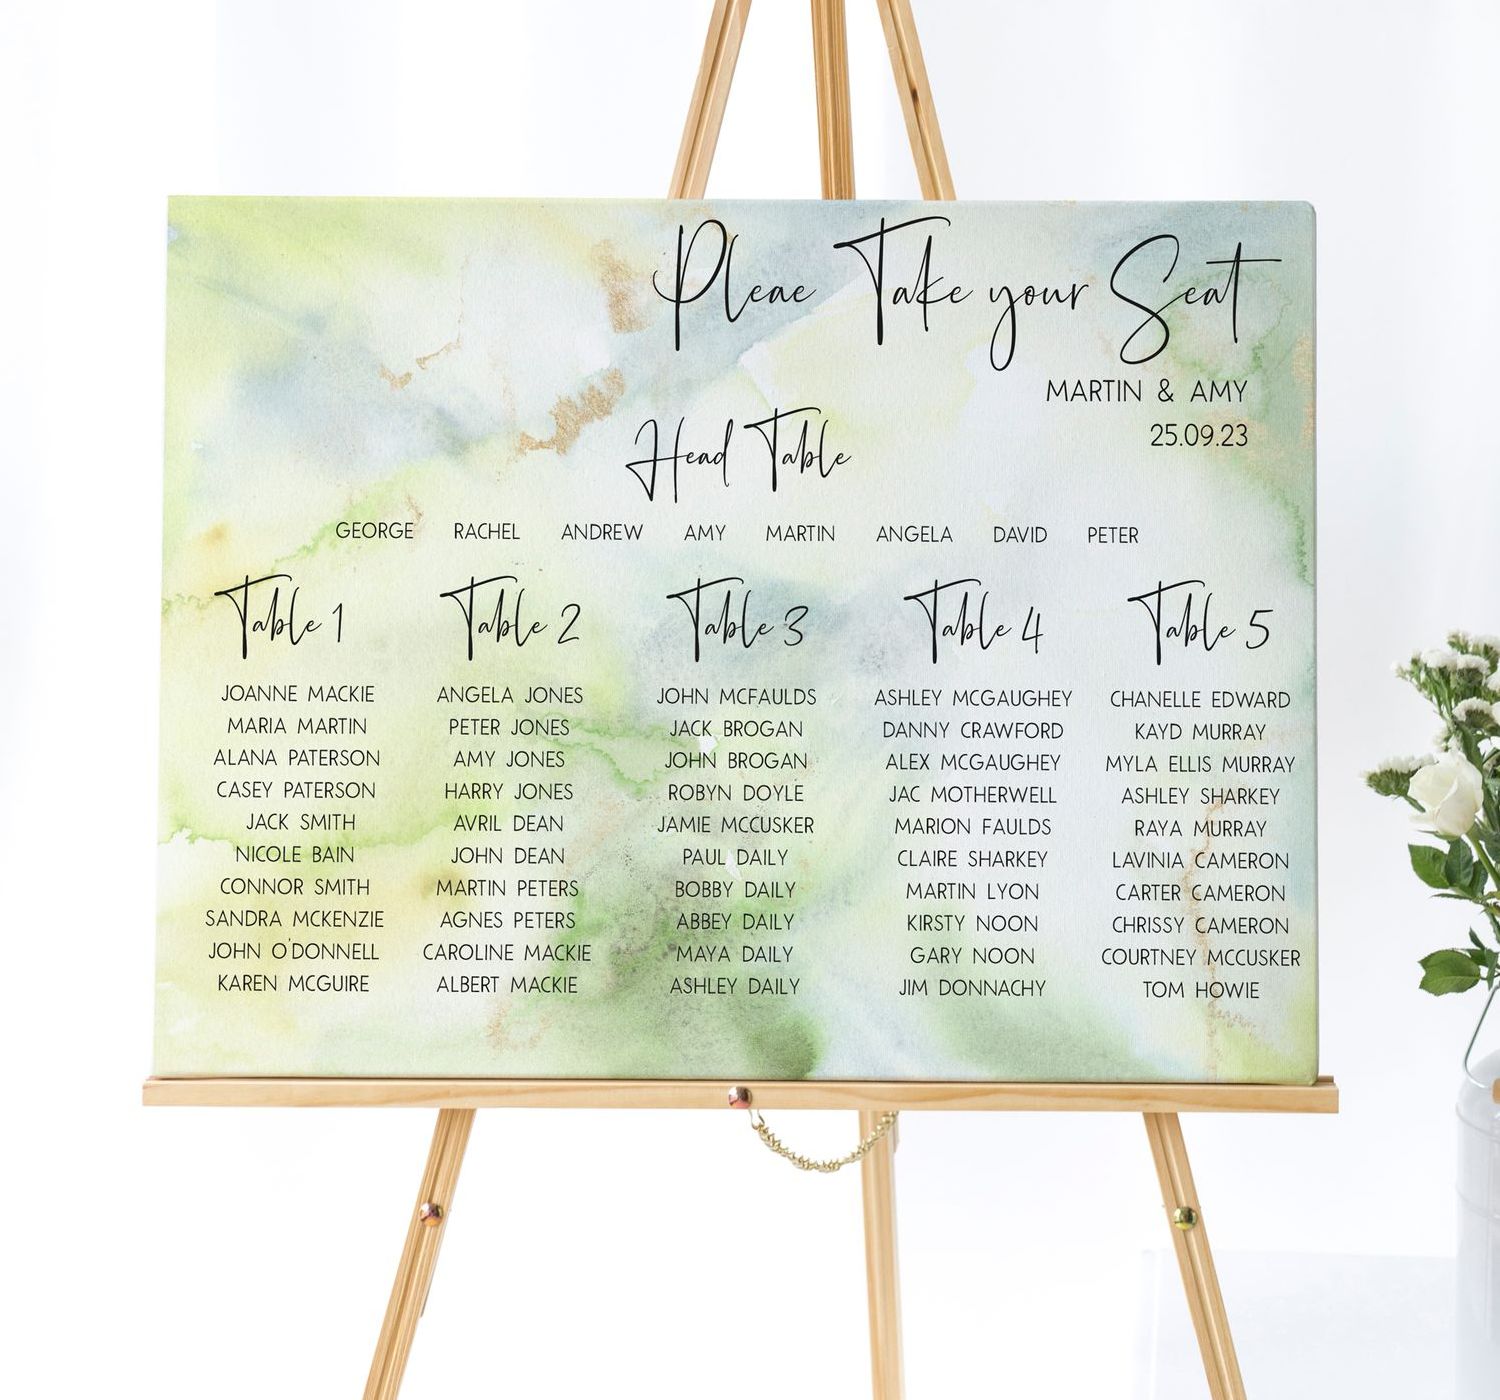 Pleae Take your Seat
MARTIN & AMY
25.09.23
Head Table
GEORGE RACHEL ANDREW AMY MARTIN ANGELA DAVID PETER
Table 1
JOANNE MACKIE
MARIA MARTIN
ALANA PATERSON
CASEY PATERSON
JACK SMITH
NICOLE BAIN
CONNOR SMITH
SANDRA MCKENZIE
JOHN O'DONNELL
KAREN MCGUIRE
Table 2
ANGELA JONES
PETER JONES
AMY JONES
HARRY JONES
AVRIL DEAN
JOHN DEAN
MARTIN PETERS
AGNES PETERS
CAROLINE MACKIE
ALBERT MACKIE
Table 3
JOHN MCFAULDS
JACK BROGAN
JOHN BROGAN
ROBYN DOYLE
JAMIE MCCUSKER
PAUL DAILY
BOBBY DAILY
ABBEY DAILY
MAYA DAILY
ASHLEY DAILY
Table 4
ASHLEY MCGAUGHEY
DANNY CRAWFORD
ALEX MCGAUGHEY
JAC MOTHERWELL
MARION FAULDS
CLAIRE SHARKEY
MARTIN LYON
KIRSTY NOON
GARY NOON
JIM DONNACHY
Table 5
CHANELLE EDWARD
KAYD MURRAY
MYLA ELLIS MURRAY
ASHLEY SHARKEY
RAYA MURRAY
LAVINIA CAMERON
CARTER CAMERON
CHRISSY CAMERON
COURTNEY MCCUSKER
TOM HOWIE